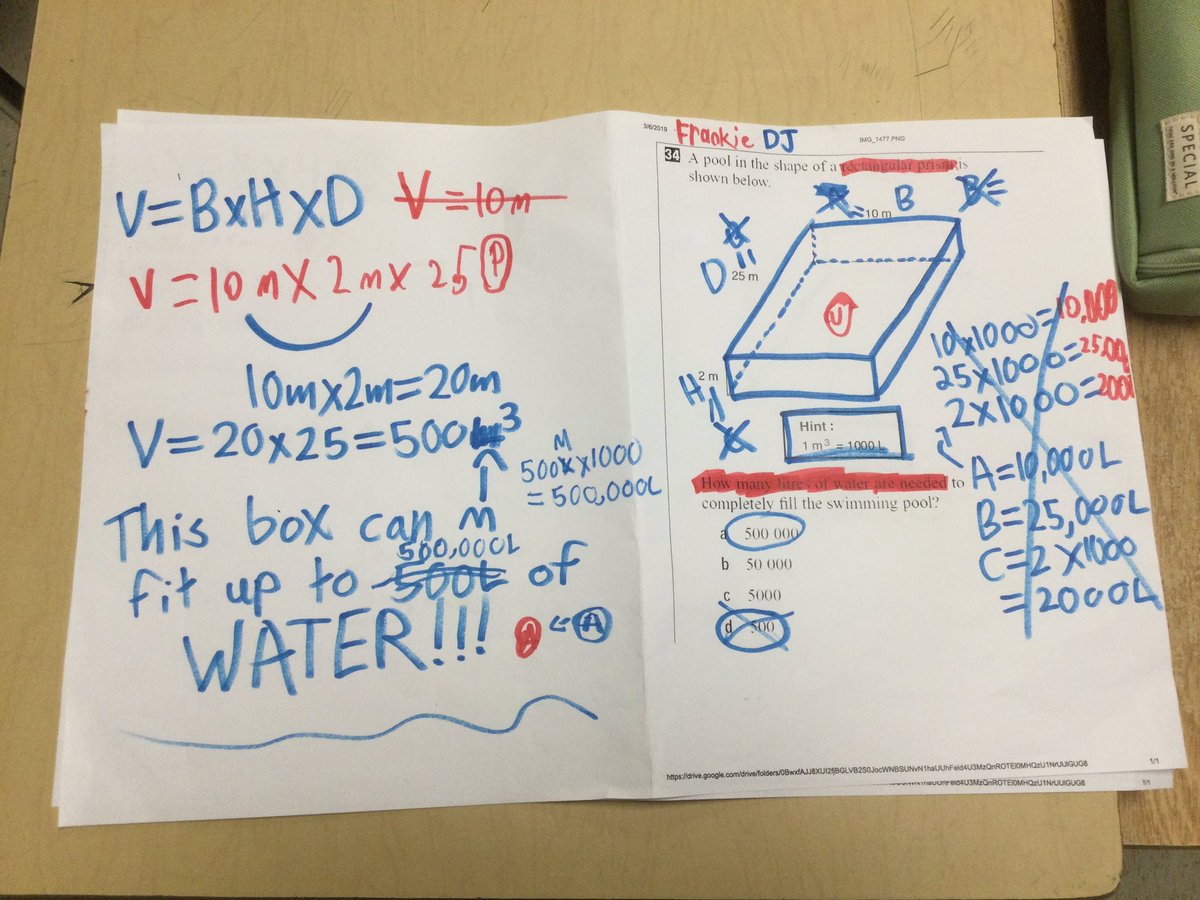 V=BxHxD
V=10m
V=10mX2mx25
P
10mx2m=20m
V=20x25=500 3
M
M
500 x1000
=500,000L
This box can
500,000L
fit up to 500L of
WATER!!!
A
3/6/2019
Frankie DJ
IMG_1477.PNG
34 A pool in the shape of a rectangular prism is
shown below.
B
=10 m
D
25 m
U
2 m
H
Hint :
1 m³ = 1000 L
10x1000=10,000
25x1000=25,00
2x1000=200
A=10,000L
B=25,000L
C=2X1000
=2000L
How many litres of water are needed to
completely fill the swimming pool?
a 500 000
b 50 000
c 5000
d 500
1/1
1/1
SPECIAL